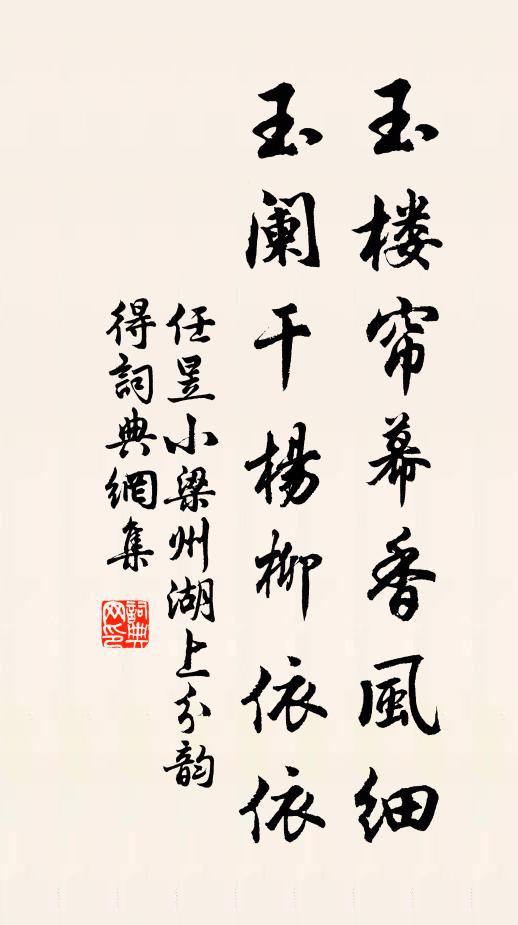 玉楼帘幕香風细
玉阑干楊柳依依
任昱小梁州湖上分韵
得詞典網集
詞典网印